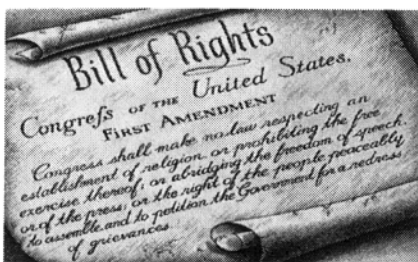 Bill of Rights
Congreſs OF THE United States.
FIRST AMENDMENT
Congress shall make no law respecting an
establishment of religion, or prohibiting the free
exercise thereof; or abridging the freedom of speech,
or of the press; or the right of the people peaceably
to assemble, and to petition the Government for a redress
of grievances